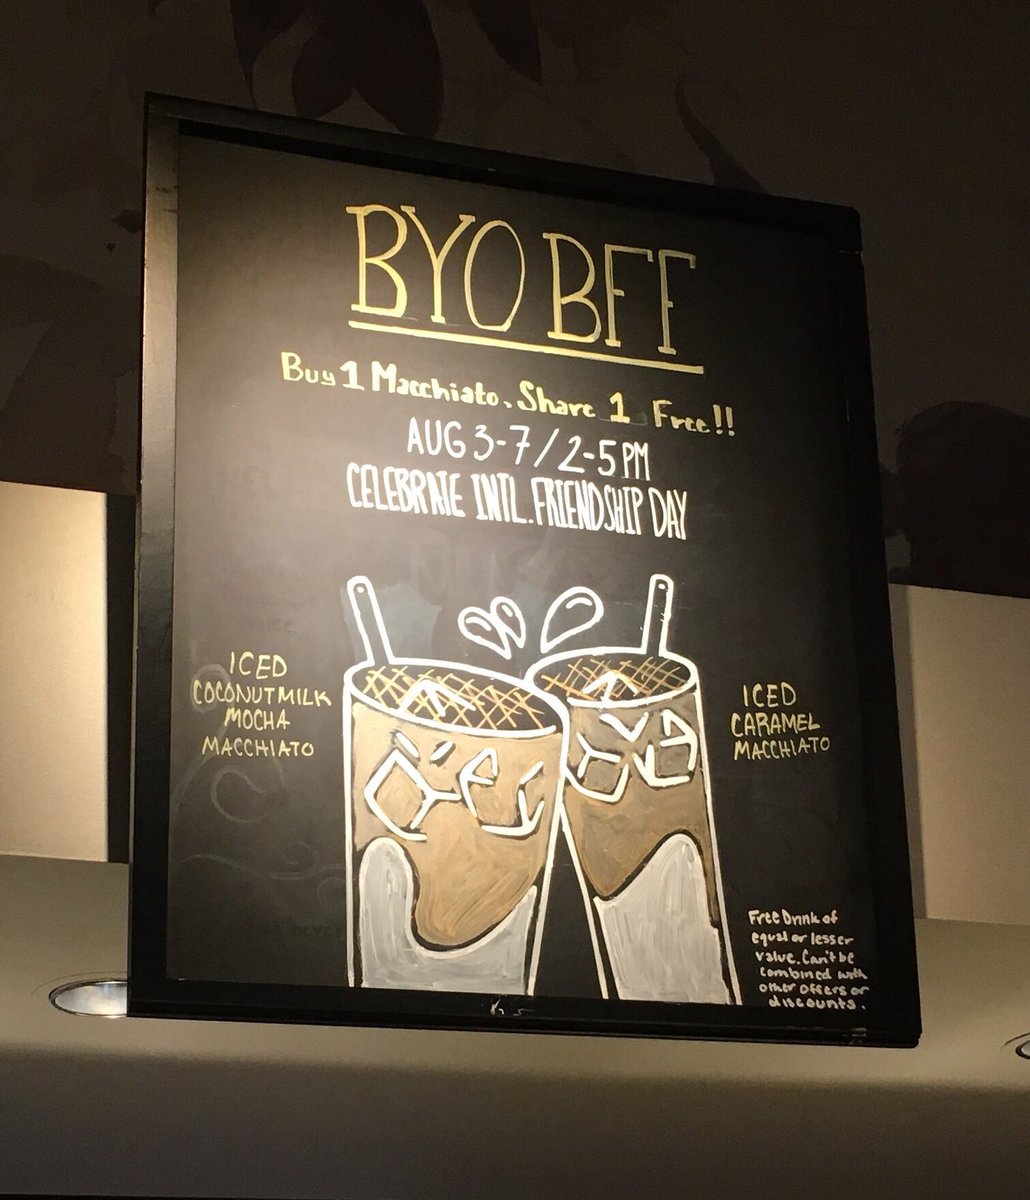 BYO BFF
Buy 1 Macchiato, Share 1 Free!!
AUG 3-7 / 2-5 PM
CELEBRATE INTL. FRIENDSHIP DAY
ICED
COCONUTMILK
MOCHA
MACCHIATO
ICED
CARAMEL
MACCHIATO
Free Drink of
equal or lesser
value. Can't be
combined with
other offers or
discounts.